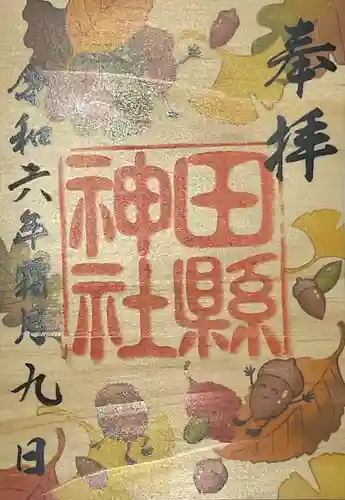 奉拝
田縣
神社
令和六年霜月九日